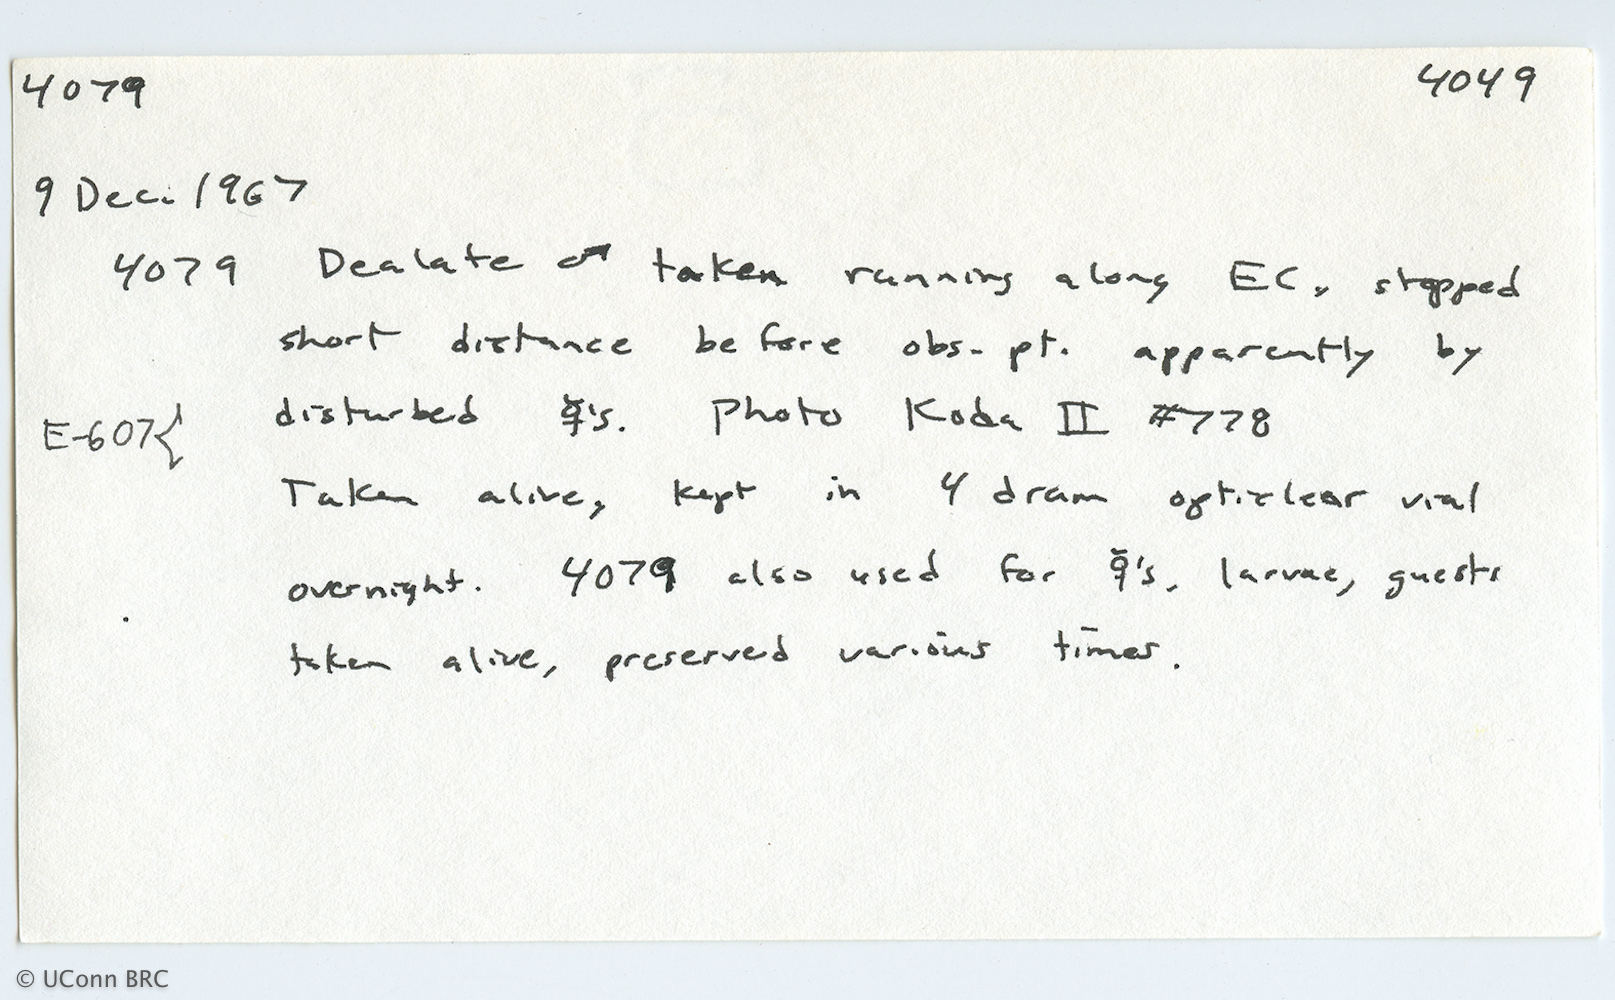 4079 4049
9 Dec. 1967
4079 Dealate ♂ taken running along EC, stopped
short distance before obs. pt. apparently by
E-607{ disturbed ☿'s. Photo Koda II #778
Taken alive, kept in 4 dram opticlear vial
overnight. 4079 also used for ☿'s, larvae, guests
taken alive, preserved various times.
© UConn BRC